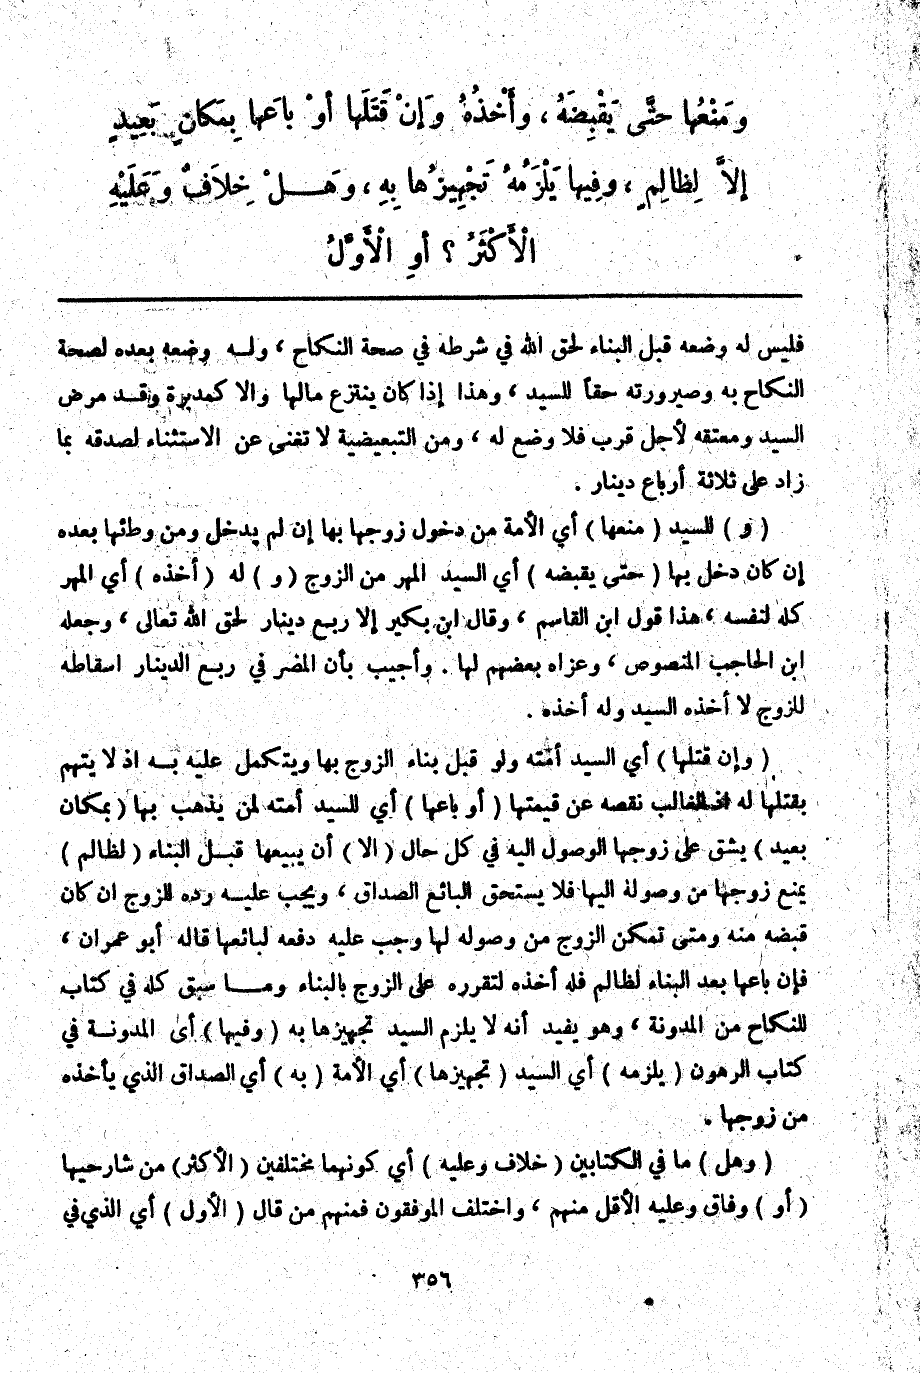 وَمَنْعُها حَتَّى يَقْبِضَهُ ، وأَخْذُهُ وَإِنْ قَتَلَها أوْ باَعَها بِمَكانٍ بَعِيدٍ
إلاَّ لِظالِمٍ ، وفِيها يَلْزَمُهُ تَجْهِيزُها بِهِ ، وَهَــلْ خِلاَفٌ وَعَلَيْهِ
الْأَكْثَرُ ؟ أو الْأَوَّلُ
فليس له وضعه قبل البناء لحق الله في شرطه في صحة النكاح ، ولــه وضعه بعده لصحة
النكاح به وصيرورته حقاً للسيد ، وهذا إذا كان ينتزع مالها والا كمدبرة وقــد مرض
السيد ومعتقه لأجل قرب فلا وضع له ، ومن التبعيضية لا تغنى عن الاستثناء لصدقه بما
زاد على ثلاثة أرباع دينار .
( و ) للسيد ( منعها ) أي الأمة من دخول زوجها بها إن لم يدخل ومن وطئها بعده
إن كان دخل بها ( حتى يقبضه ) أي السيد المهر من الزوج ( و ) له ( أخذه ) أي المهر
كله لنفسه ، هذا قول ابن القاسم ، وقال ابن بكير إلا ربــع دينار لحق الله تعالى ، وجعله
ابن الحاجب المنصوص ، وعزاه بعضهم لها . وأجيب بأن المضر في ربــع الدينار اسقاطه
للزوج لا أخذه السيد وله أخذه .
( وإن قتلها ) أي السيد أمته ولو قبل بناء الزوج بها ويتكمل عليه بــه اذ لا يتهم
بقتلها له اذ الغالب نقصه عن قيمتها ( أو باعها ) أي للسيد أمته لمن يذهب بها ( بمكان
بعيد ) يشق على زوجها الوصول اليه في كل حال ( الا ) أن يبيعها قبــل البناء ( لظالم )
يمنع زوجها من وصوله اليها فلا يستحق البائع الصداق ، ويجب عليــه رده للزوج ان كان
قبضه منه ومتى تمكن الزوج من وصوله لها وجب عليه دفعه لبائعها قاله أبو عمران ،
فإن باعها بعد البناء لظالم فله أخذه لتقرره على الزوج بالبناء ومــا سبق كله في كتاب
للنكاح من المدونة ، وهو يفيد أنه لا يلزم السيد تجهيزها به ( وفيها ) أى المدونــة في
كتاب الرهون ( يلزمه ) أي السيد ( تجهيزها ) أي الأمة ( به ) أي الصداق الذي يأخذه
من زوجها .
( وهل ) ما في الكتابين ( خلاف وعليه ) أي كونهما مختلفين ( الأكثر) من شارحيها
( أو ) وفاق وعليه الأقل منهم ، واختلف الموفقون فمنهم من قال ( الأول ) أي الذي في
٣٥٦